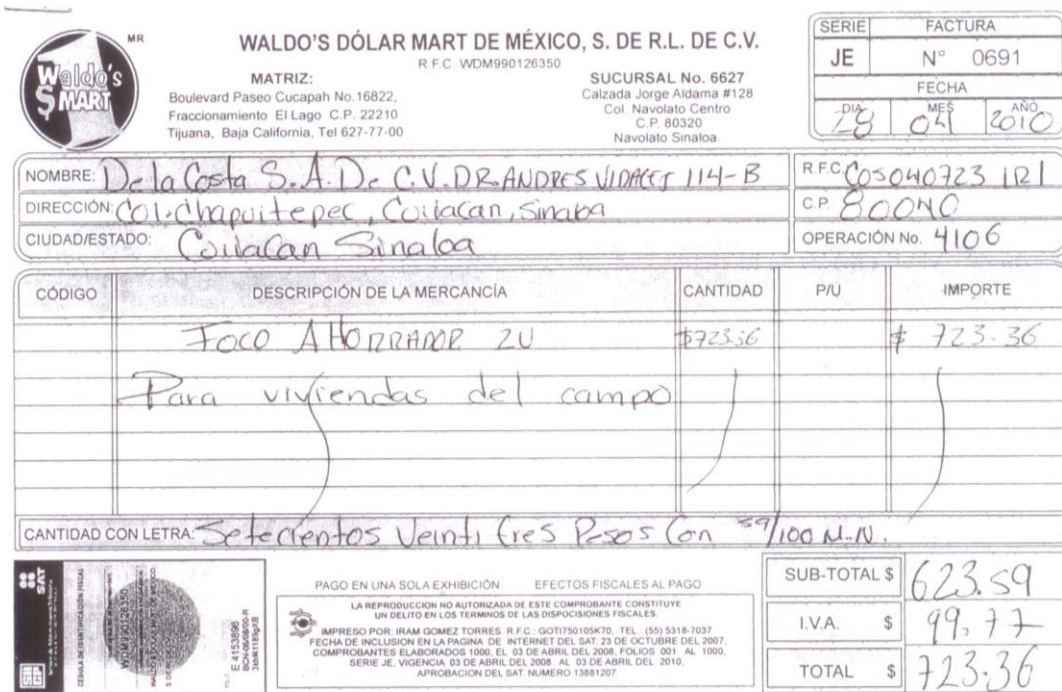 MR
Waldo's
$ MART
WALDO'S DÓLAR MART DE MÉXICO, S. DE R.L. DE C.V.
R.F.C. WDM990126350
MATRIZ:
Boulevard Paseo Cucapah No.16822,
Fraccionamiento El Lago C.P. 22210
Tijuana, Baja California, Tel 627-77-00
SUCURSAL No. 6627
Calzada Jorge Aldama #128
Col. Navolato Centro
C.P. 80320
Navolato Sinaloa
SERIE FACTURA
JE N° 0691
FECHA
DIA MES AÑO
28 04 2010
NOMBRE: De la Costa S.A. De C.V. DR. ANDRES VIDALES 114-B
R.F.C. COS040723 1R1
DIRECCIÓN: Col. Chapultepec, Culiacan, Sinaloa
C.P. 80040
CIUDAD/ESTADO: Culiacan Sinaloa
OPERACIÓN No. 4106
CÓDIGO DESCRIPCIÓN DE LA MERCANCÍA CANTIDAD P/U IMPORTE
FOCO AHORRADOR 2U $723.36 $ 723.36
Para viviendas del campo
CANTIDAD CON LETRA: Setecientos Veinti tres Pesos Con /100 M.N.
SAT
SHCP
CÉDULA DE IDENTIFICACIÓN FISCAL
WDM990126350
E 4153896
PAGO EN UNA SOLA EXHIBICIÓN EFECTOS FISCALES AL PAGO
LA REPRODUCCION NO AUTORIZADA DE ESTE COMPROBANTE CONSTITUYE
UN DELITO EN LOS TERMINOS DE LAS DISPOCISIONES FISCALES.
IMPRESO POR: IRAM GOMEZ TORRES. R.F.C.: GOTI750105K70, TEL.: (55) 5318-7037
FECHA DE INCLUSION EN LA PAGINA DE INTERNET DEL SAT: 23 DE OCTUBRE DEL 2007,
COMPROBANTES ELABORADOS 1000, EL 03 DE ABRIL DEL 2008, FOLIOS 001 AL 1000,
SERIE JE, VIGENCIA 03 DE ABRIL DEL 2008 AL 03 DE ABRIL DEL 2010,
APROBACION DEL SAT NUMERO 13881207
SUB-TOTAL $ 623.59
I.V.A. $ 99.77
TOTAL $ 723.36